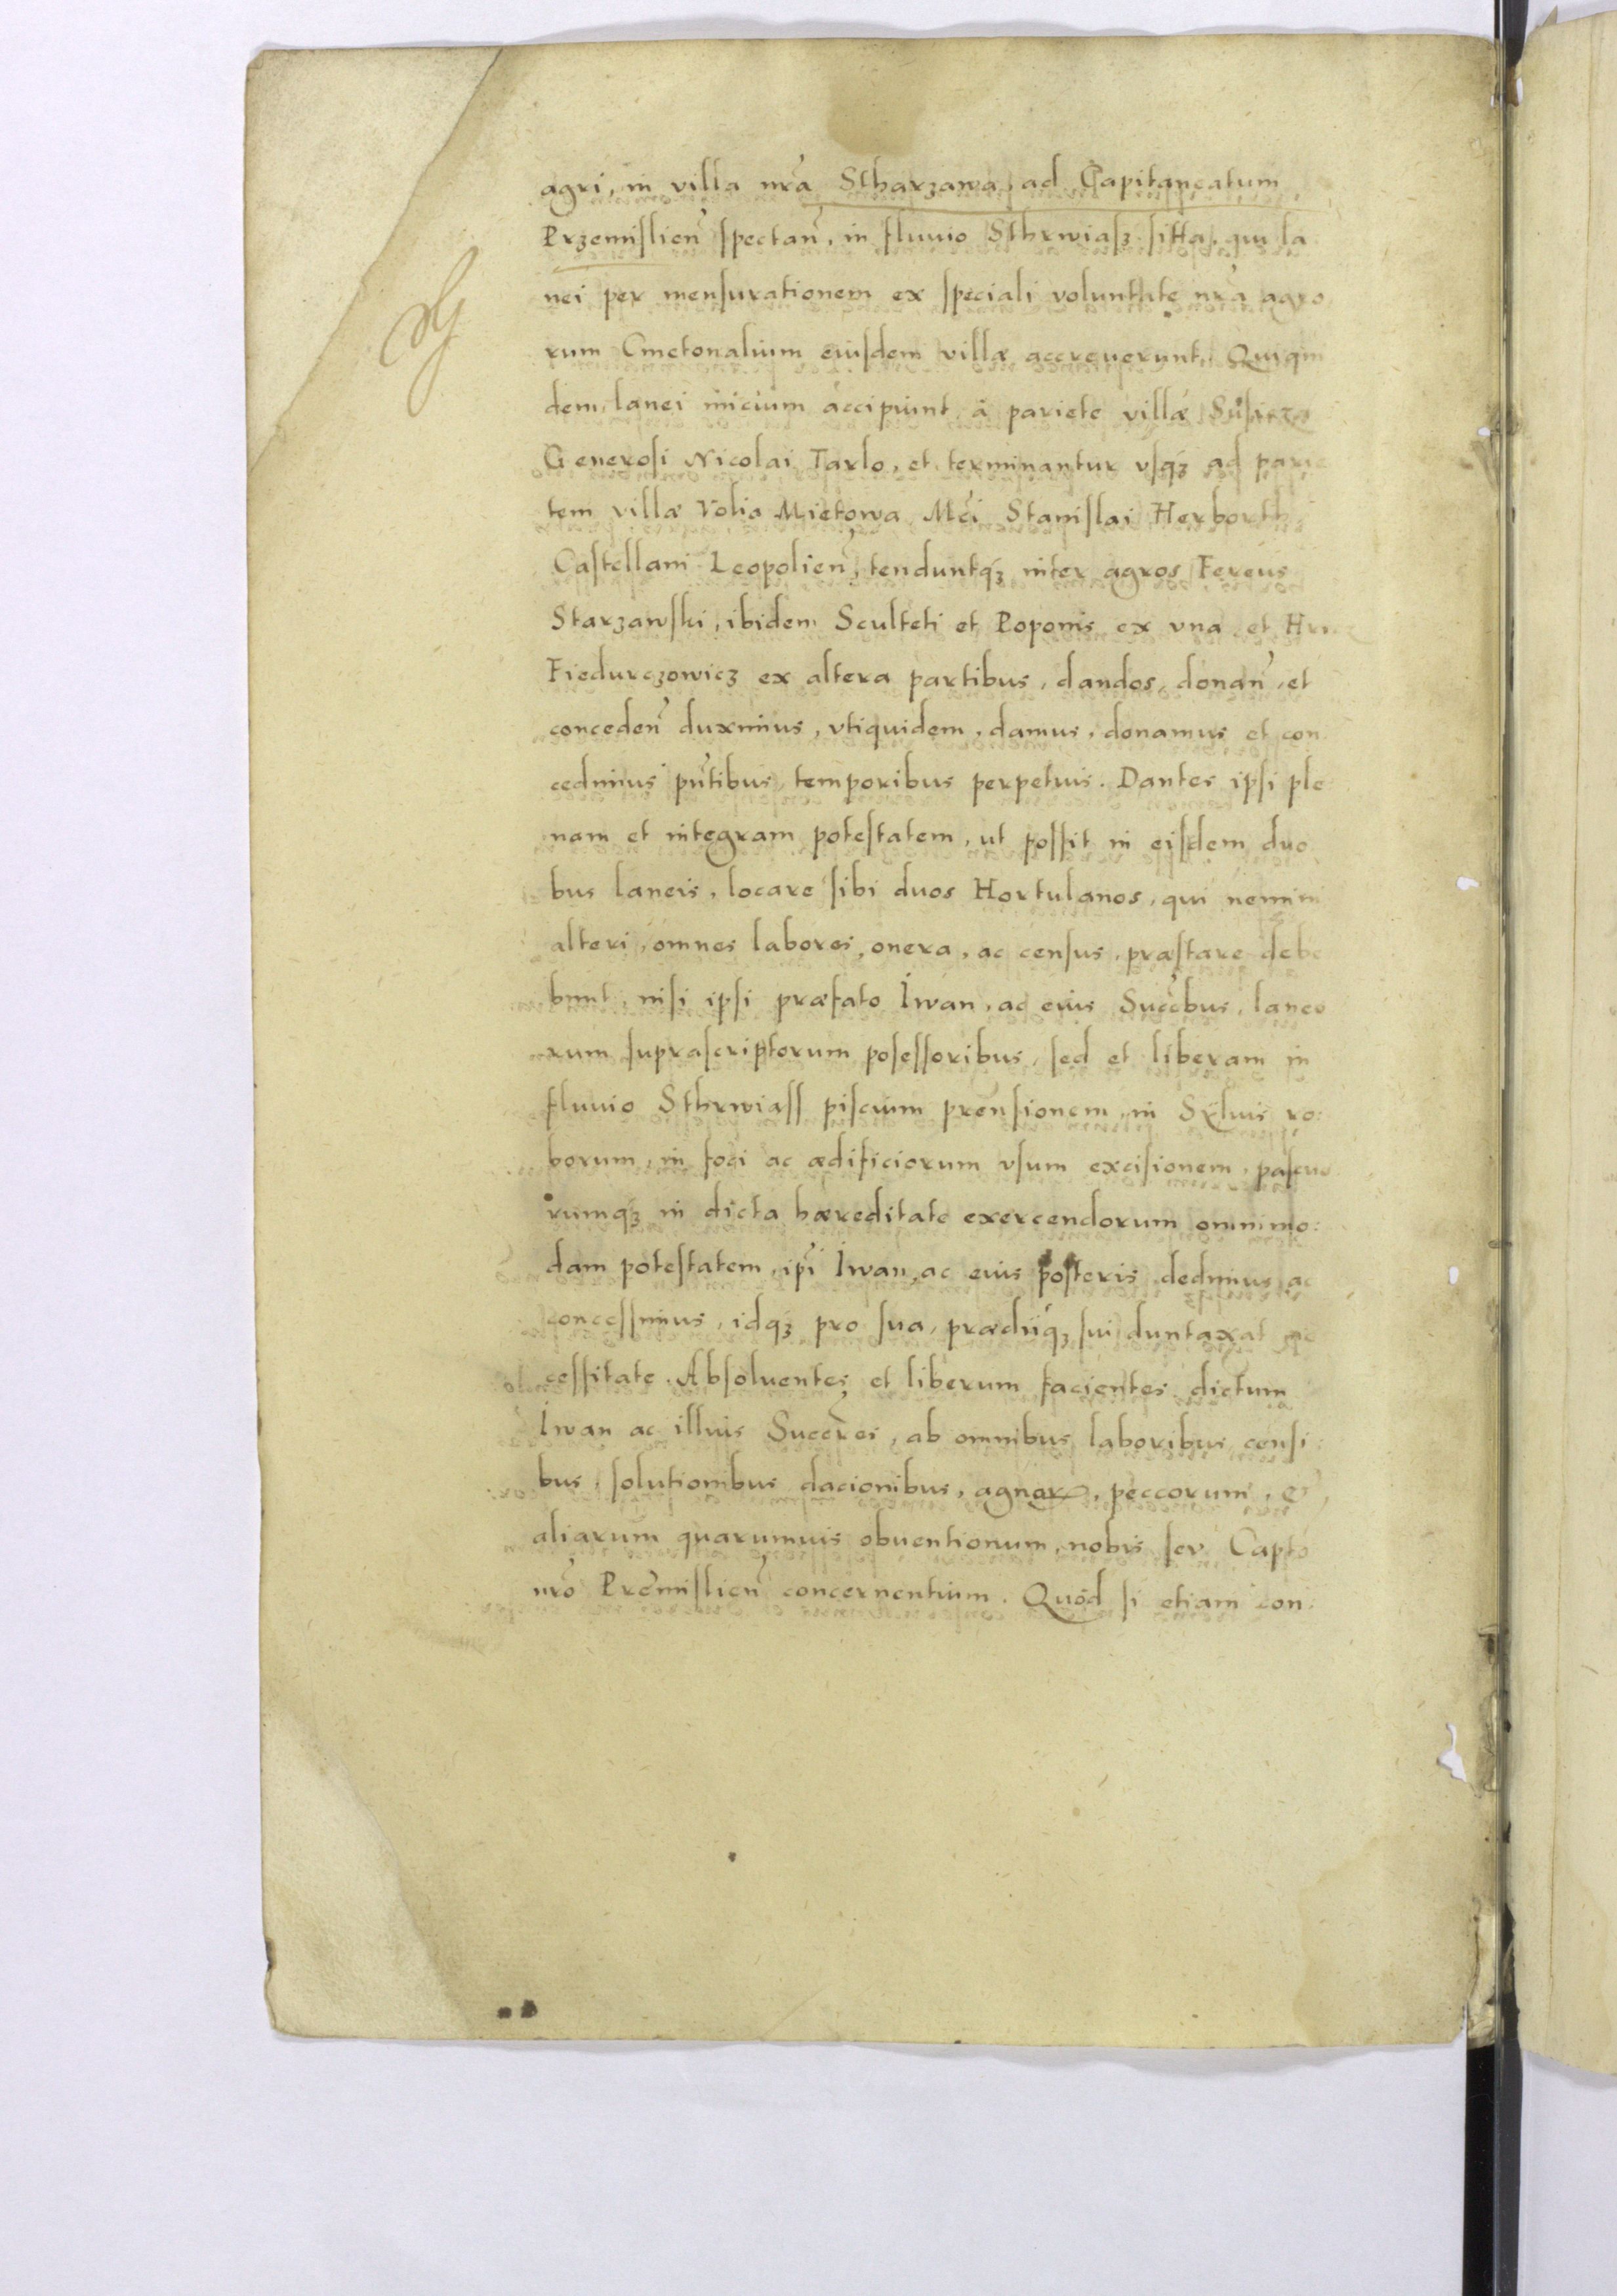 agri, in villa nr̃a Stharzawa, ad Capitaneatum
Przemislien̄ spectan̄, in fluuio Sthrwiasz sitta, qui la
nei per mensurationem ex speciali voluntate nr̃a agro
rum Cmetonalium eiusdem villæ accreuerunt. Quiqui
dem lanei inicium accipiunt à pariete villæ
Generosi Nicolai Tarlo, et terminantur vsq₃ ad parie
tem villæ Volia Mietowa Mc̃i Stanislai Herborth
Castellani Leopolien̄, tenduntq₃ inter agros Fereus
Starzawski, ibidem Sculteti et Poponis ex vna et
Fiedurczowicz ex altera partibus, dandos, donan̄, et
conceden̄ duximus, vtiquidem, damus, donamus et con
cedimus pñtibus, temporibus perpetuis. Dantes ipsi ple
nam et integram potestatem, ut possit in eisdem duo
bus laneis, locare sibi duos Hortulanos, qui nemini
alteri, omnes labores, onera, ac census, præstare debe
bunt, nisi ipsi præfato Iwan, ac eius Succ̃bus, laneo
rum suprascriptorum posessoribus, sed et liberam in
fluuio Sthrwiass piscium prensionem, in Syluis ro:
borum, in foci ac ædificiorum vsum excisionem, pascuo
rumq₃ in dicta hæreditate exercendorum omnimo:
dam potestatem, ip̃i Iwan, ac eius posteris dedimus ac
concessimus, idq₃ pro sua, prædiiq₃ sui duntaxat ne
cessitate. Absoluentes et liberum facientes dictum
Iwan ac illius Succr̃es, ab omnibus laboribus censi
bus, solutionibus dacionibus, agnor, peccorum, et
aliarum quarumuis obuentionum, nobis seu Capto
nrõ Premislien̄ concernentium. Quòd si etiam con: